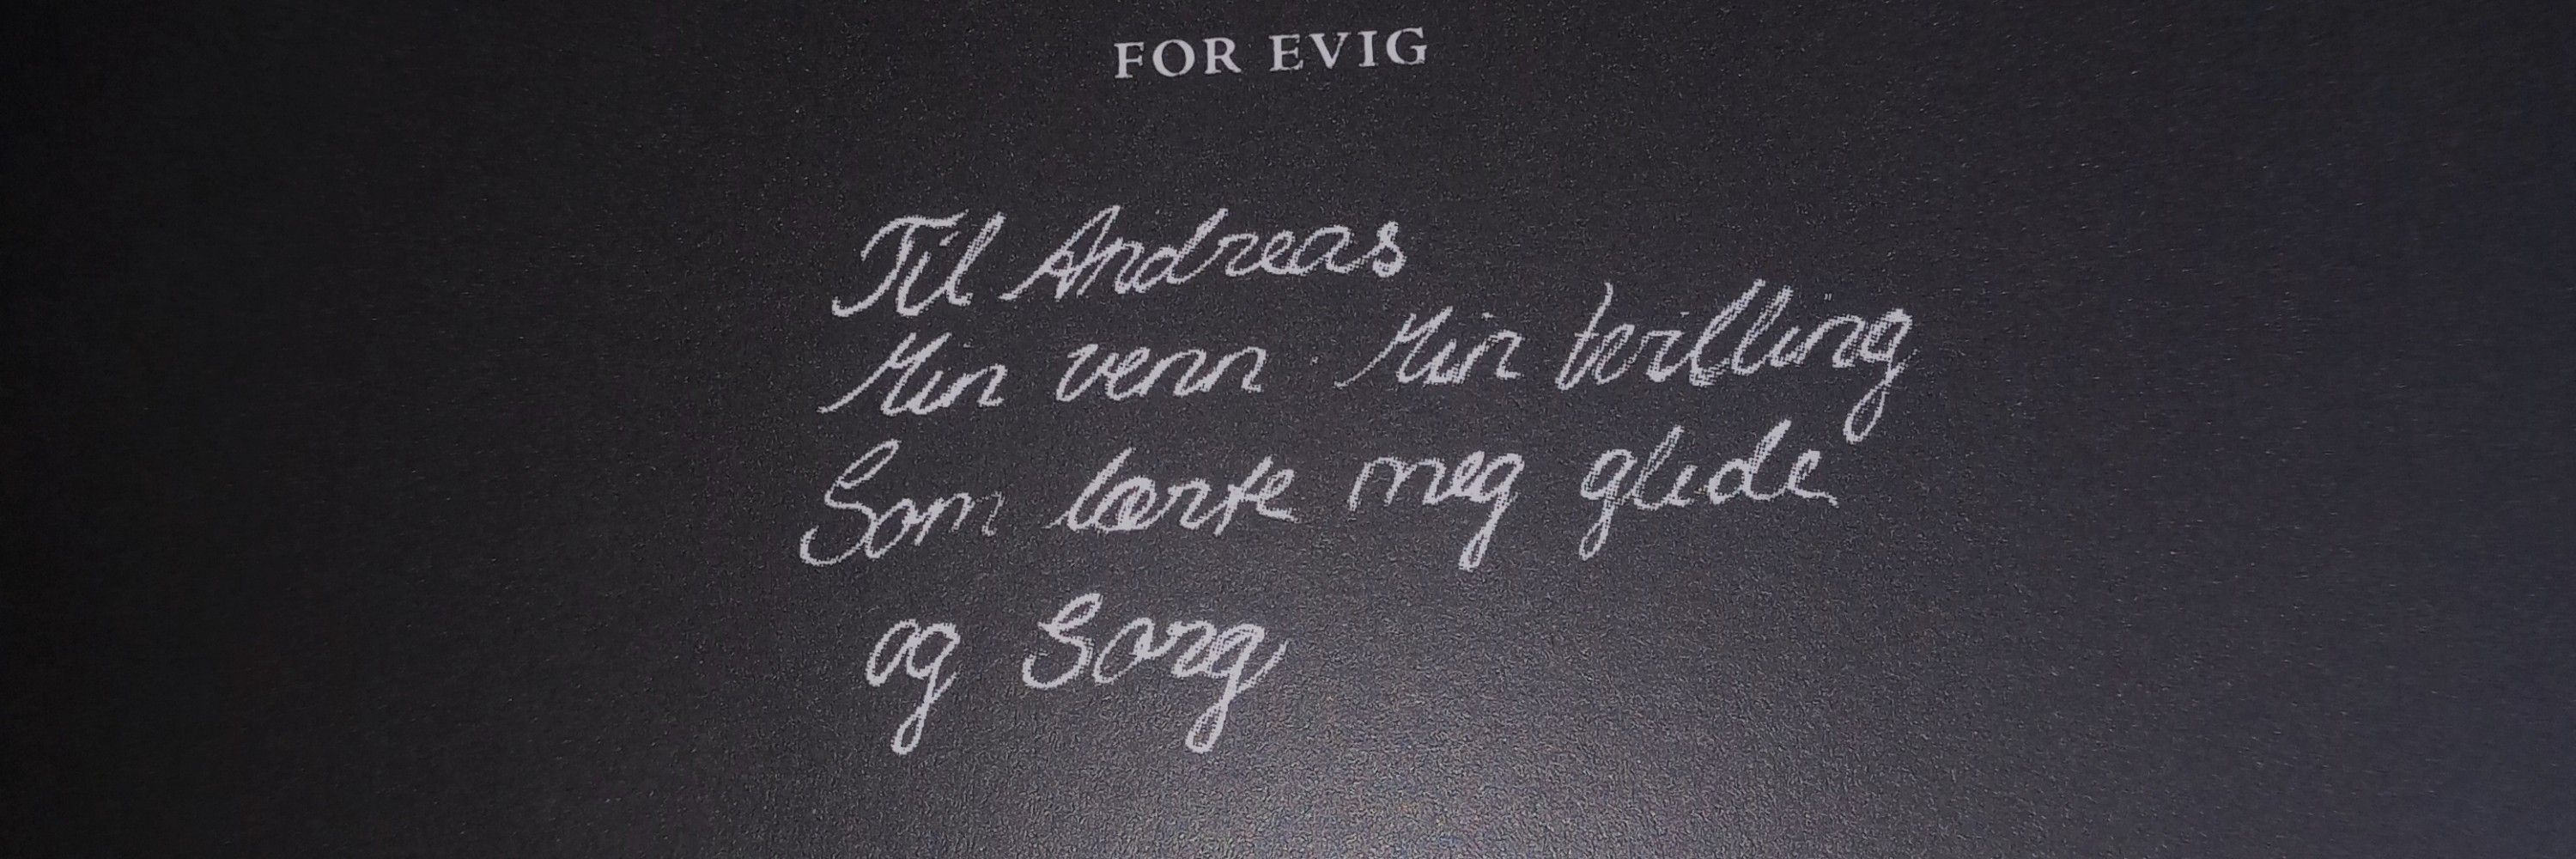 FOR EVIG
Til Andreas
Min venn Min tvilling
Som lærte meg glede
og Sorg